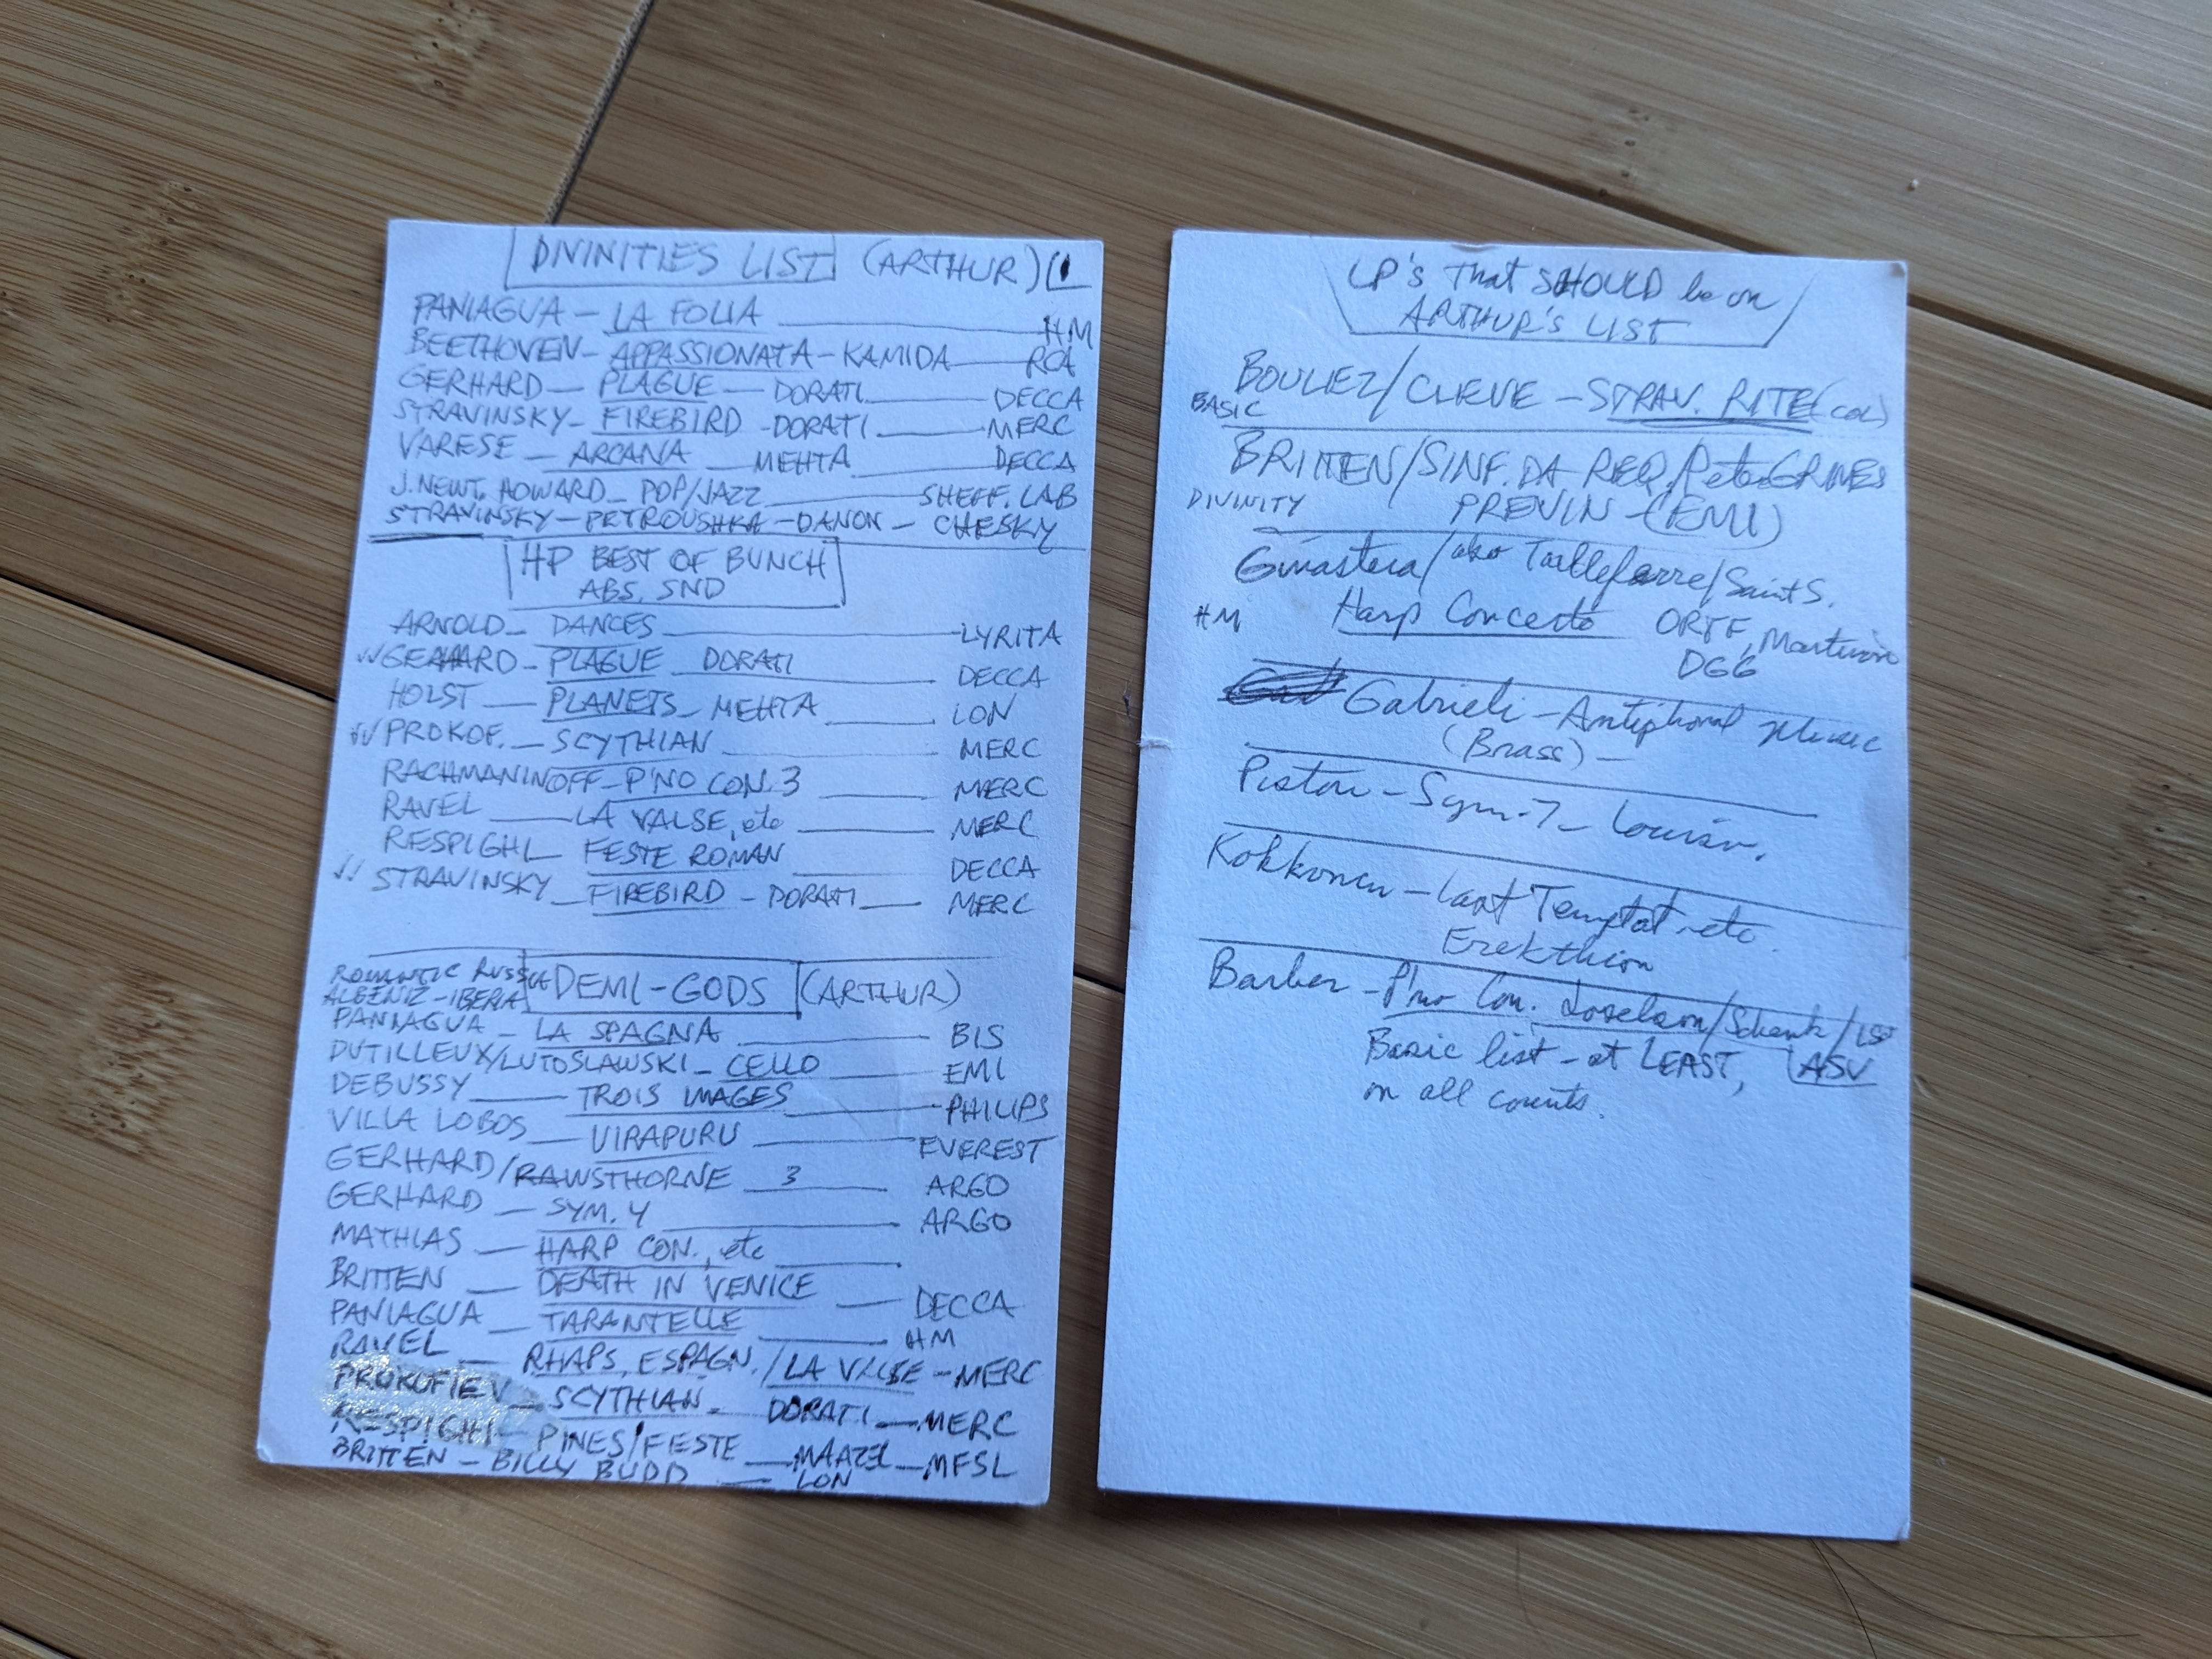 DIVINITIES LIST (ARTHUR) 1
PANIAGUA — LA FOLIA — HM
BEETHOVEN — APPASSIONATA — KAMIDA — RCA
GERHARD — PLAGUE — DORATI — DECCA
STRAVINSKY — FIREBIRD - DORATI — MERC
VARESE — ARCANA — MEHTA — DECCA
J. NEWT. HOWARD — POP/JAZZ — SHEFF. LAB
STRAVINSKY — PETROUSHKA — DANON — CHESKY
HP BEST OF BUNCH
ABS. SND
ARNOLD — DANCES — LYRITA
✓✓ GERHARD — PLAGUE — DORATI — DECCA
HOLST — PLANETS — MEHTA — LON
✓✓ PROKOF. — SCYTHIAN — MERC
RACHMANINOFF — P'NO CON. 3 — MERC
RAVEL — LA VALSE, etc — MERC
RESPIGHI — FESTE ROMAN — DECCA
✓✓ STRAVINSKY — FIREBIRD - DORATI — MERC
ROMANTIC RUSSIA
ALBENIZ - IBERIA
DEMI-GODS (ARTHUR)
PANIAGUA — LA SPAGNA — BIS
DUTILLEUX/LUTOSLAWSKI — CELLO — EMI
DEBUSSY — TROIS IMAGES — PHILIPS
VILLA LOBOS — UIRAPURU — EVEREST
GERHARD/RAWSTHORNE 3 — ARGO
GERHARD — SYM. 4 — ARGO
MATHIAS — HARP CON., etc —
BRITTEN — DEATH IN VENICE — DECCA
PANIAGUA — TARANTELLE — HM
RAVEL — RHAPS. ESPAGN. / LA VALSE — MERC
PROKOFIEV — SCYTHIAN — DORATI — MERC
RESPIGHI — PINES/FESTE — MAAZEL — MFSL
BRITTEN — BILLY BUDD — LON
LP's That SHOULD be on
ARTHUR'S LIST
BOULEZ/CLEVE — STRAV. RITE (COL)
BASIC
BRITTEN/SINF. DA REQ./Peter GRIMES
DIVINITY PREVIN — (EMI)
Ginastera/also Tailleferre/Saint S.
HM Harp Concerto ORTF, Martinon
DGG
Gabrieli — Antiphonal Music
(Brass) —
Piston — Sym. 7 — Louisv.
Kokkonen — Last Temptat. etc.
Erekthion
Barber — P'no Con. Joselson/Schenk/LSO
Basic list — at LEAST, ASV
on all counts.